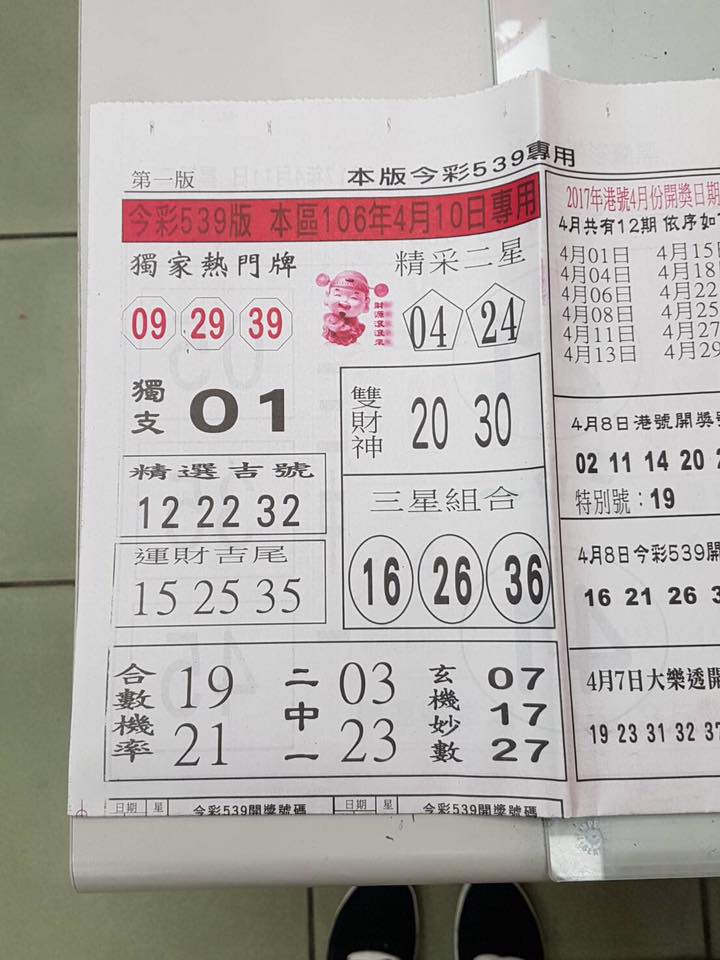 第二版
本版今彩539專用
今彩539版 本區106年4月10日專用
獨家熱門牌
09 29 39
財源滾滾來
精采二星
04 24
獨支
01
雙財神
20 30
精選吉號
12 22 32
三星組合
16 26 36
運財吉尾
15 25 35
合數機率
19
21
二中一
03
23
玄機妙數
07
17
27
日期 星 今彩539開獎號碼 日期 星 今彩539開獎號碼
2017年港號4月份開獎日期
4月共有12期 依序如
4月01日 4月15日
4月04日 4月18
4月06日 4月22
4月08日 4月25
4月11日 4月27
4月13日 4月29
4月8日港號開獎
02 11 14 20
特別號：19
4月8日今彩539開
16 21 26
4月7日大樂透開
19 23 31 32 37